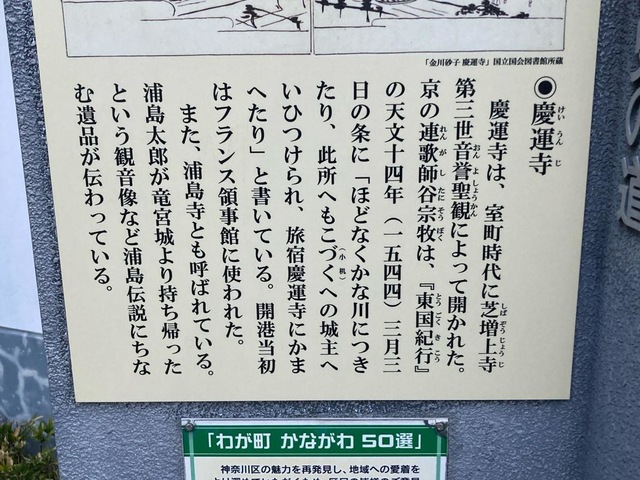 「金川砂子 慶運寺」国立国会図書館所蔵
◉慶運寺
けいうんじ
慶運寺は、室町時代に芝増上寺
しばぞうじょうじ
第三世音誉聖観によって開かれた。
おんよしょうかん
京の連歌師谷宗牧は、『東国紀行』
れんがしたにそうぼく
とうごくきこう
の天文十四年（一五四四）三月三
日の条に「ほどなくかな川につき
たり、此所へもこづくへの城主へ
（小机）
いひつけられ、旅宿慶運寺にかま
へたり」と書いている。開港当初
はフランス領事館に使われた。
また、浦島寺とも呼ばれている。
浦島太郎が竜宮城より持ち帰った
という観音像など浦島伝説にちな
む遺品が伝わっている。
の道
「わが町 かながわ 50選」
神奈川区の魅力を再発見し、地域への愛着を